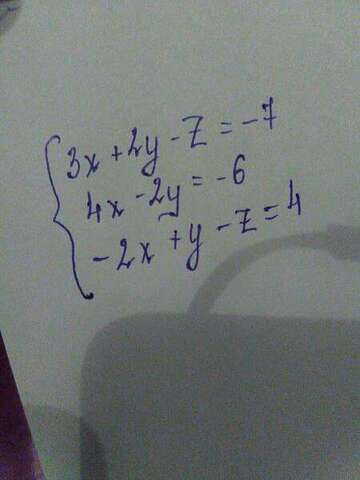 3x + 2y - z = -7
4x - 2y = -6
-2x + y - z = 4